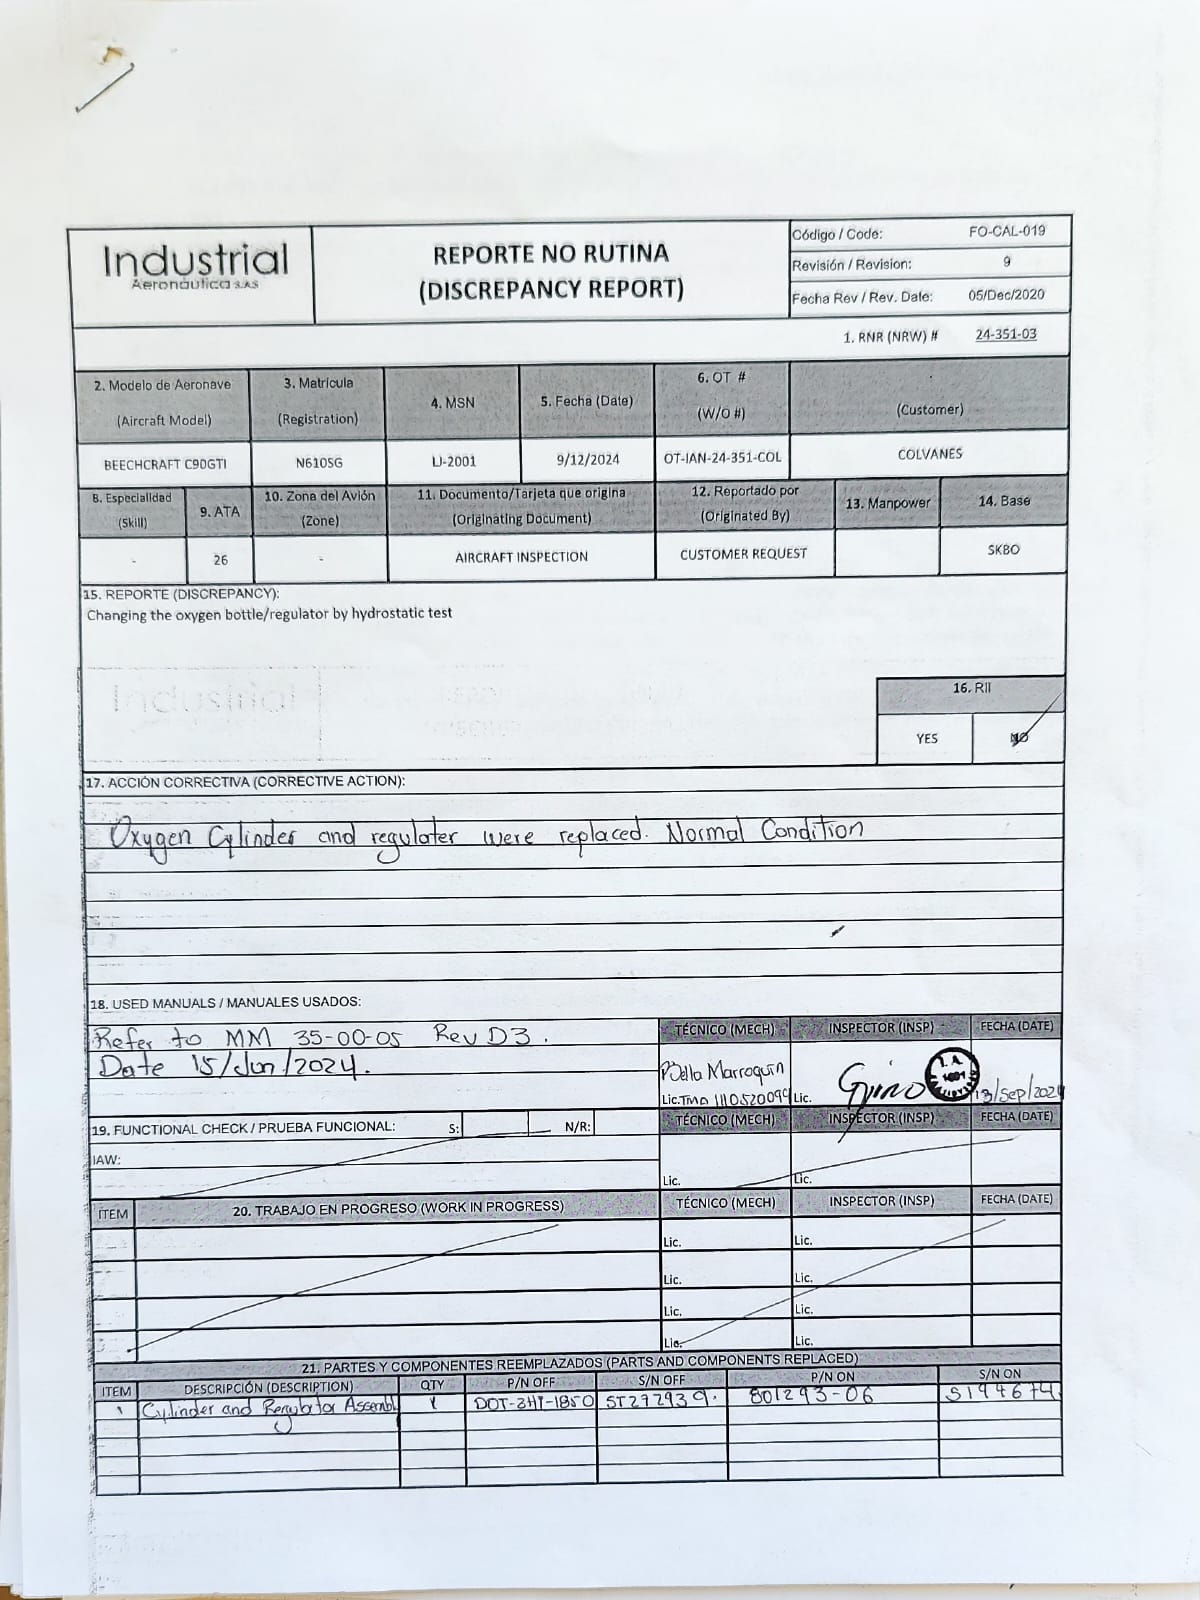 Industrial
Aeronáutica S.AS
REPORTE NO RUTINA
(DISCREPANCY REPORT)
Código / Code: FO-CAL-019
Revisión / Revision: 9
Fecha Rev / Rev. Date: 05/Dec/2020
1. RNR (NRW) # 24-351-03
2. Modelo de Aeronave (Aircraft Model)
3. Matrícula (Registration)
4. MSN
5. Fecha (Date)
6. OT # (W/O #)
(Customer)
BEECHCRAFT C90GTI N610SG LJ-2001 9/12/2024 OT-IAN-24-351-COL COLVANES
8. Especialidad (Skill)
9. ATA
10. Zona del Avión (Zone)
11. Documento/Tarjeta que origina (Originating Document)
12. Reportado por (Originated By)
13. Manpower
14. Base
- 26 - AIRCRAFT INSPECTION CUSTOMER REQUEST SKBO
15. REPORTE (DISCREPANCY):
Changing the oxygen bottle/regulator by hydrostatic test
Industrial
16. RII
YES NO
17. ACCIÓN CORRECTIVA (CORRECTIVE ACTION):
Oxygen Cylinder and regulater were replaced. Normal Condition
18. USED MANUALS / MANUALES USADOS:
Refer to MM 35-00-05 Rev D3.
Date 15/Jun/2024.
TÉCNICO (MECH) INSPECTOR (INSP) FECHA (DATE)
Marroquin
Lic. 1110520099 Lic. 13/Sep/2024
19. FUNCTIONAL CHECK / PRUEBA FUNCIONAL: S: N/R:
TÉCNICO (MECH) INSPECTOR (INSP) FECHA (DATE)
IAW:
Lic. Lic.
ÍTEM 20. TRABAJO EN PROGRESO (WORK IN PROGRESS) TÉCNICO (MECH) INSPECTOR (INSP) FECHA (DATE)
Lic. Lic.
Lic. Lic.
Lic. Lic.
Lic. Lic.
21. PARTES Y COMPONENTES REEMPLAZADOS (PARTS AND COMPONENTS REPLACED)
ITEM DESCRIPCIÓN (DESCRIPTION) QTY P/N OFF S/N OFF P/N ON S/N ON
1 Cylinder and Regulator Assembl 1 DOT-3HT-1850 ST272939. 801293-06 S194674